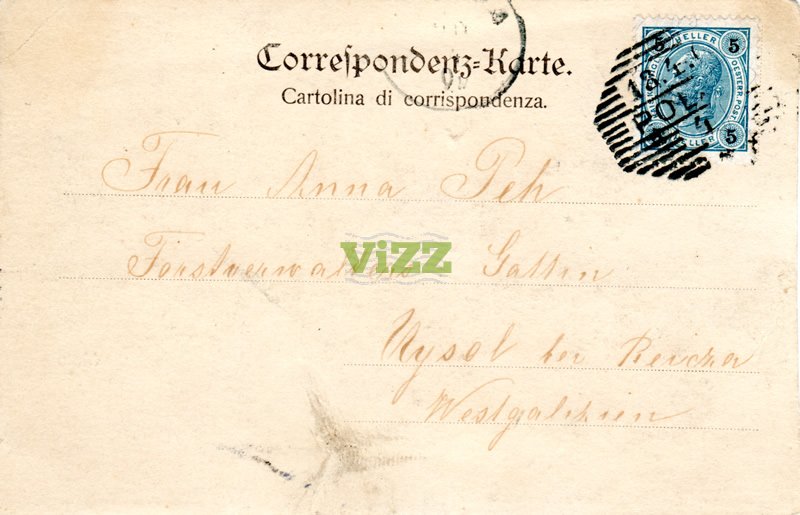 Correspondenz-Karte.
Cartolina di corrispondenza.
5 HELLER 5
5
POL
Frau Anna Peh
Forstverwalters Gattin
ViZZ
Uysol bei Reicza
Westgalizien